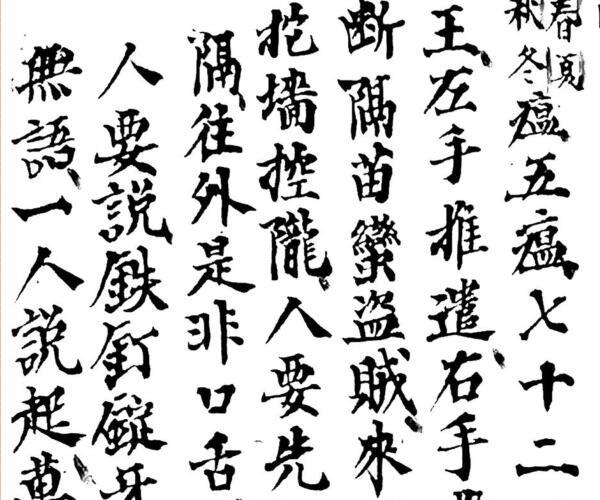 春夏秋冬瘟五瘟七十二
王左手推遣右手
断隔苗蠻盗賊來
挖墻控隴人要先
隔往外是非口舌
人要説鉄釘牙
無語一人説起萬